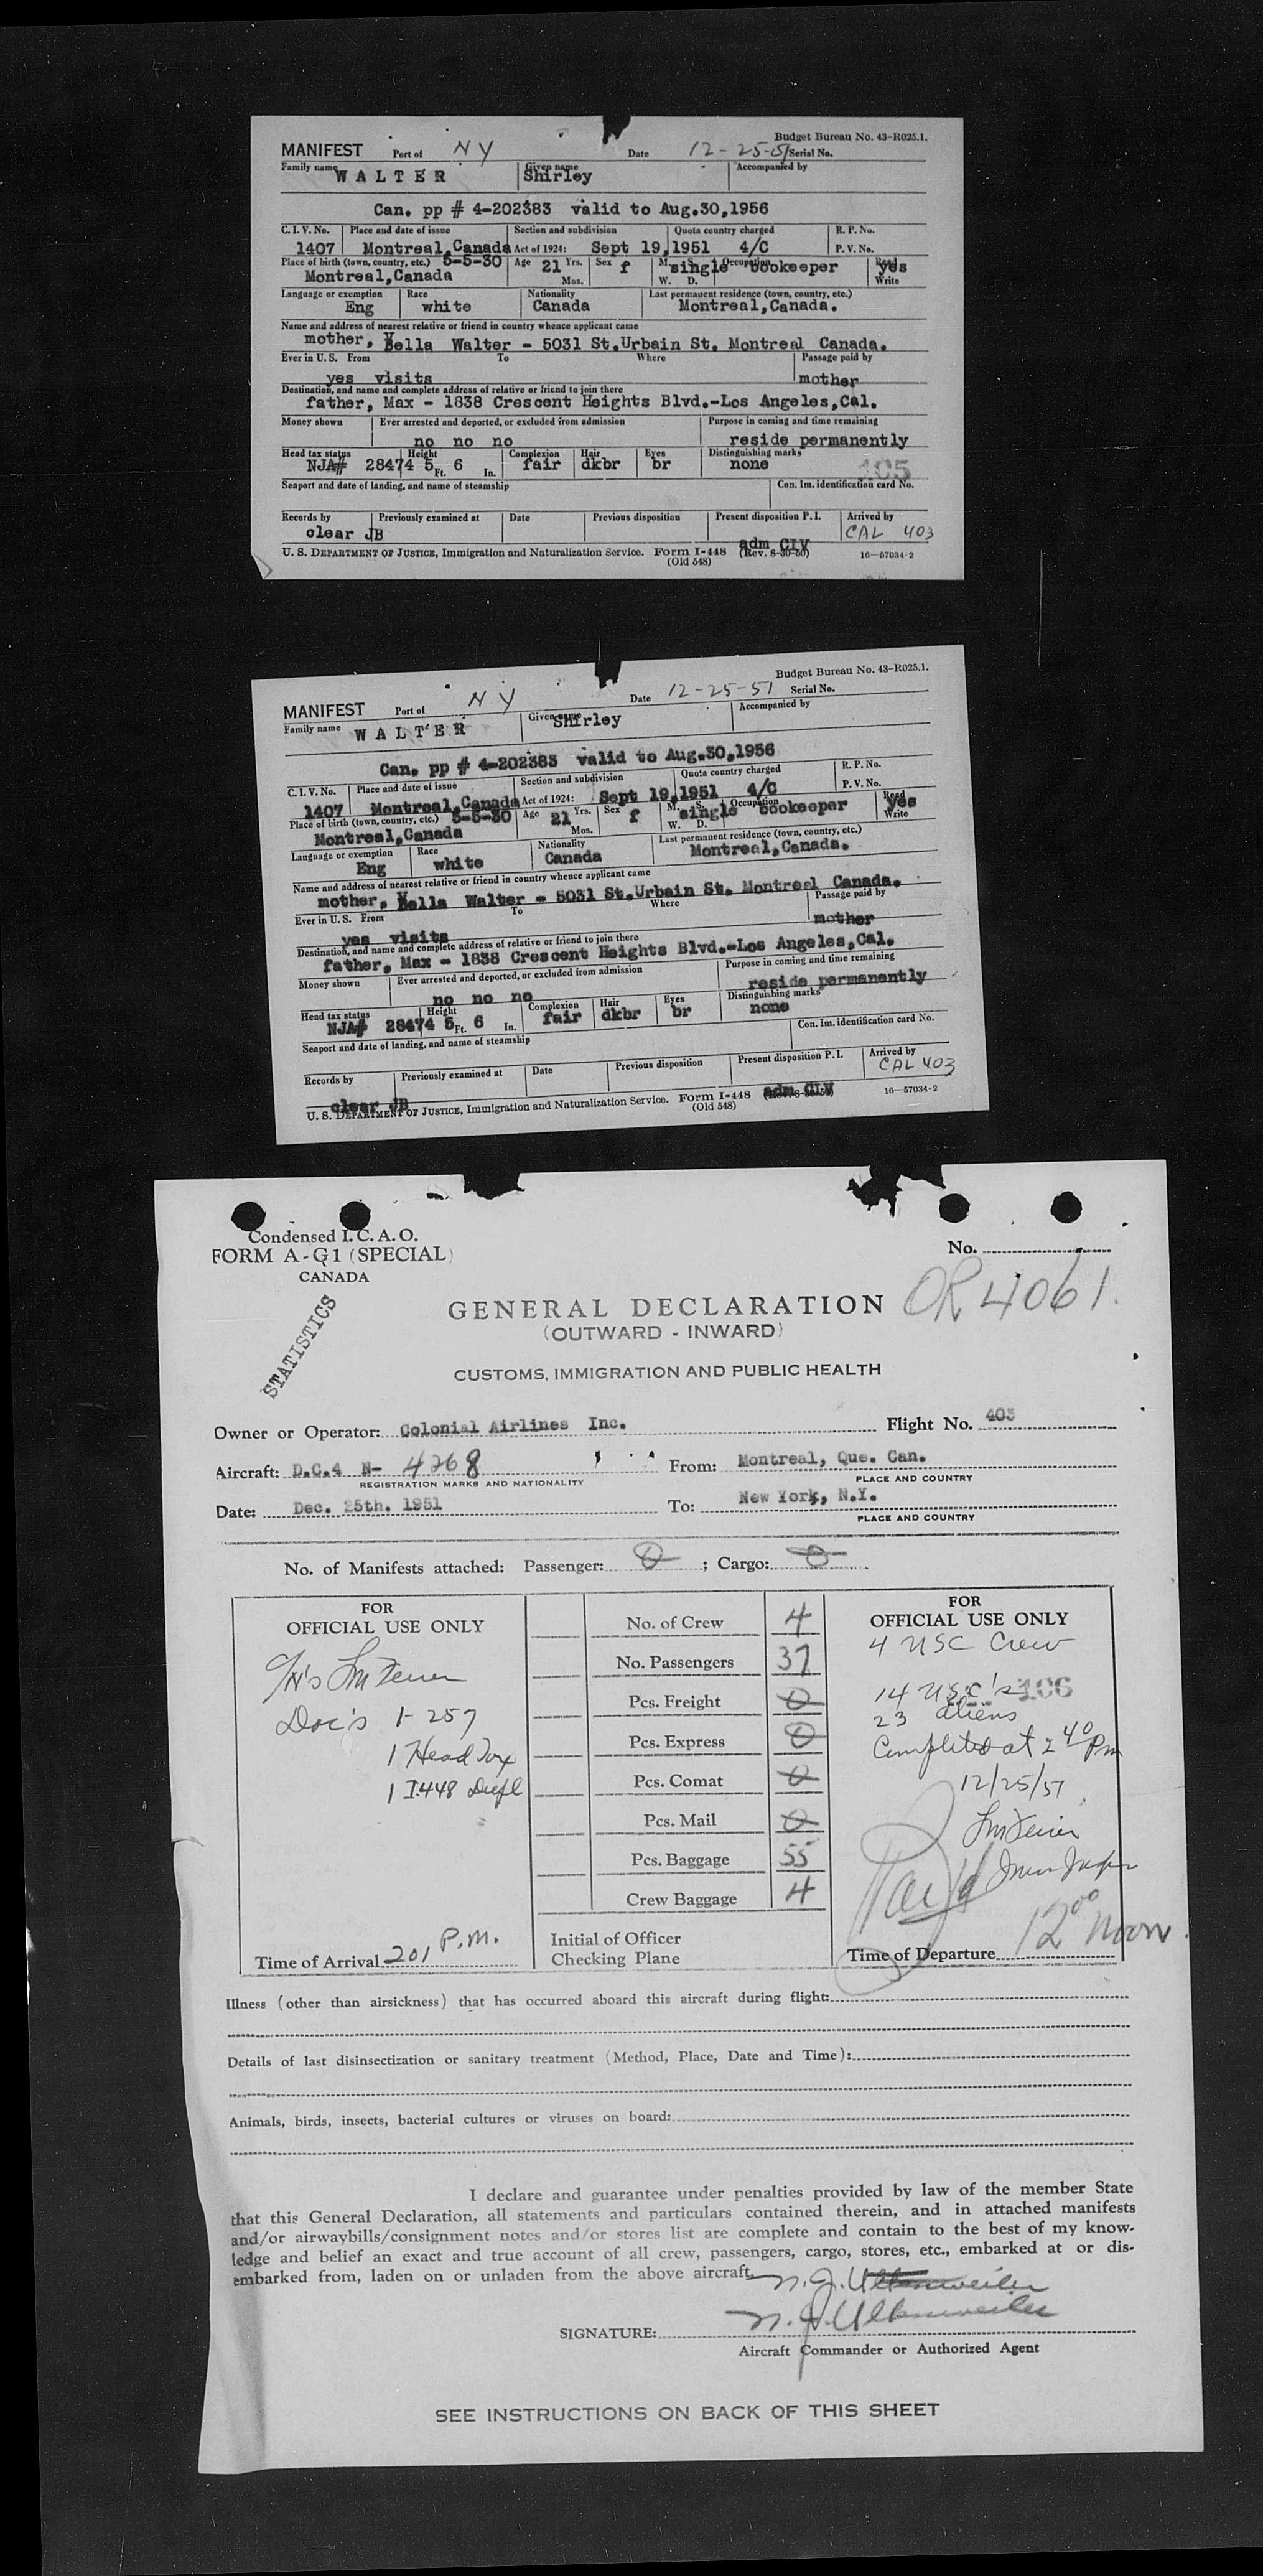 Budget Bureau No. 43-R025.1.
MANIFEST Port of NY Date 12-25-51 Serial No.
Family name WALTER Given name Shirley Accompanied by
Can. pp # 4-202383 valid to Aug.30,1956
C. I. V. No. Place and date of issue Section and subdivision Quota country charged R. P. No.
1407 Montreal,Canada Act of 1924: Sept 19,1951 4/C P. V. No.
Place of birth (town, country, etc.) 5-5-30 Age 21 Yrs. Sex f M. S. single Occupation bookeeper Read yes
Montreal,Canada Mos. W. D. Write
Language or exemption Race Nationality Last permanent residence (town, country, etc.)
Eng white Canada Montreal,Canada.
Name and address of nearest relative or friend in country whence applicant came
mother, Bella Walter - 5031 St.Urbain St. Montreal Canada.
Ever in U. S. From To Where Passage paid by
yes visits mother
Destination, and name and complete address of relative or friend to join there
father, Max - 1838 Crescent Heights Blvd.-Los Angeles,Cal.
Money shown Ever arrested and deported, or excluded from admission Purpose in coming and time remaining
no no no reside permanently
Head tax status Height Complexion Hair Eyes Distinguishing marks
NJA# 28474 5 Ft. 6 In. fair dkbr br none 105
Seaport and date of landing, and name of steamship Con. Im. identification card No.
Records by Previously examined at Date Previous disposition Present disposition P. I. Arrived by
clear JB adm CIV CAL 403
U. S. DEPARTMENT OF JUSTICE, Immigration and Naturalization Service. Form I-448 (Rev. 8-30-50) 16—57034-2
(Old 548)
Budget Bureau No. 43-R025.1.
MANIFEST Port of NY Date 12-25-51 Serial No.
Family name WALTER Given name Shirley Accompanied by
Can. pp # 4-202383 valid to Aug.30,1956
C. I. V. No. Place and date of issue Section and subdivision Quota country charged R. P. No.
1407 Montreal,Canada Act of 1924: Sept 19,1951 4/C P. V. No.
Place of birth (town, country, etc.) 5-5-30 Age 21 Yrs. Sex f M. S. single Occupation bookeeper Read yes
Montreal,Canada Mos. W. D. Write
Language or exemption Race Nationality Last permanent residence (town, country, etc.)
Eng white Canada Montreal,Canada.
Name and address of nearest relative or friend in country whence applicant came
mother, Bella Walter - 5031 St.Urbain St. Montreal Canada.
Ever in U. S. From To Where Passage paid by
yes visits mother
Destination, and name and complete address of relative or friend to join there
father, Max - 1838 Crescent Heights Blvd.-Los Angeles,Cal.
Money shown Ever arrested and deported, or excluded from admission Purpose in coming and time remaining
no no no reside permanently
Head tax status Height Complexion Hair Eyes Distinguishing marks
NJA# 28474 5 Ft. 6 In. fair dkbr br none
Seaport and date of landing, and name of steamship Con. Im. identification card No.
Records by Previously examined at Date Previous disposition Present disposition P. I. Arrived by
clear JB adm CIV CAL 403
U. S. DEPARTMENT OF JUSTICE, Immigration and Naturalization Service. Form I-448 (Rev. 8-30-50) 16—57034-2
(Old 548)
Condensed I. C. A. O.
FORM A-G1 (SPECIAL) No.
CANADA
STATISTICS
OR 4061
GENERAL DECLARATION
(OUTWARD - INWARD)
CUSTOMS, IMMIGRATION AND PUBLIC HEALTH
Owner or Operator: Colonial Airlines Inc. Flight No. 403
Aircraft: D.C.4 N- 4268 From: Montreal, Que. Can.
REGISTRATION MARKS AND NATIONALITY PLACE AND COUNTRY
Date: Dec. 25th. 1951 To: New York, N.Y.
PLACE AND COUNTRY
No. of Manifests attached: Passenger: 0 ; Cargo: 0
FOR OFFICIAL USE ONLY
Doc's 1-257
1 Head Tax
1 I448 Dupl
Time of Arrival 201 P.M.
No. of Crew 4
No. Passengers 37
Pcs. Freight 0
Pcs. Express 0
Pcs. Comat 0
Pcs. Mail 0
Pcs. Baggage 55
Crew Baggage 4
Initial of Officer
Checking Plane
FOR OFFICIAL USE ONLY
4 USC Crew
14 USC's 106
23 aliens
Completed at 2 40 Pm
12/25/51
Time of Departure 12 00 Noon
Illness (other than airsickness) that has occurred aboard this aircraft during flight:
Details of last disinsectization or sanitary treatment (Method, Place, Date and Time):
Animals, birds, insects, bacterial cultures or viruses on board:
I declare and guarantee under penalties provided by law of the member State
that this General Declaration, all statements and particulars contained therein, and in attached manifests
and/or airwaybills/consignment notes and/or stores list are complete and contain to the best of my know-
ledge and belief an exact and true account of all crew, passengers, cargo, stores, etc., embarked at or dis-
embarked from, laden on or unladen from the above aircraft.
SIGNATURE:
Aircraft Commander or Authorized Agent
SEE INSTRUCTIONS ON BACK OF THIS SHEET